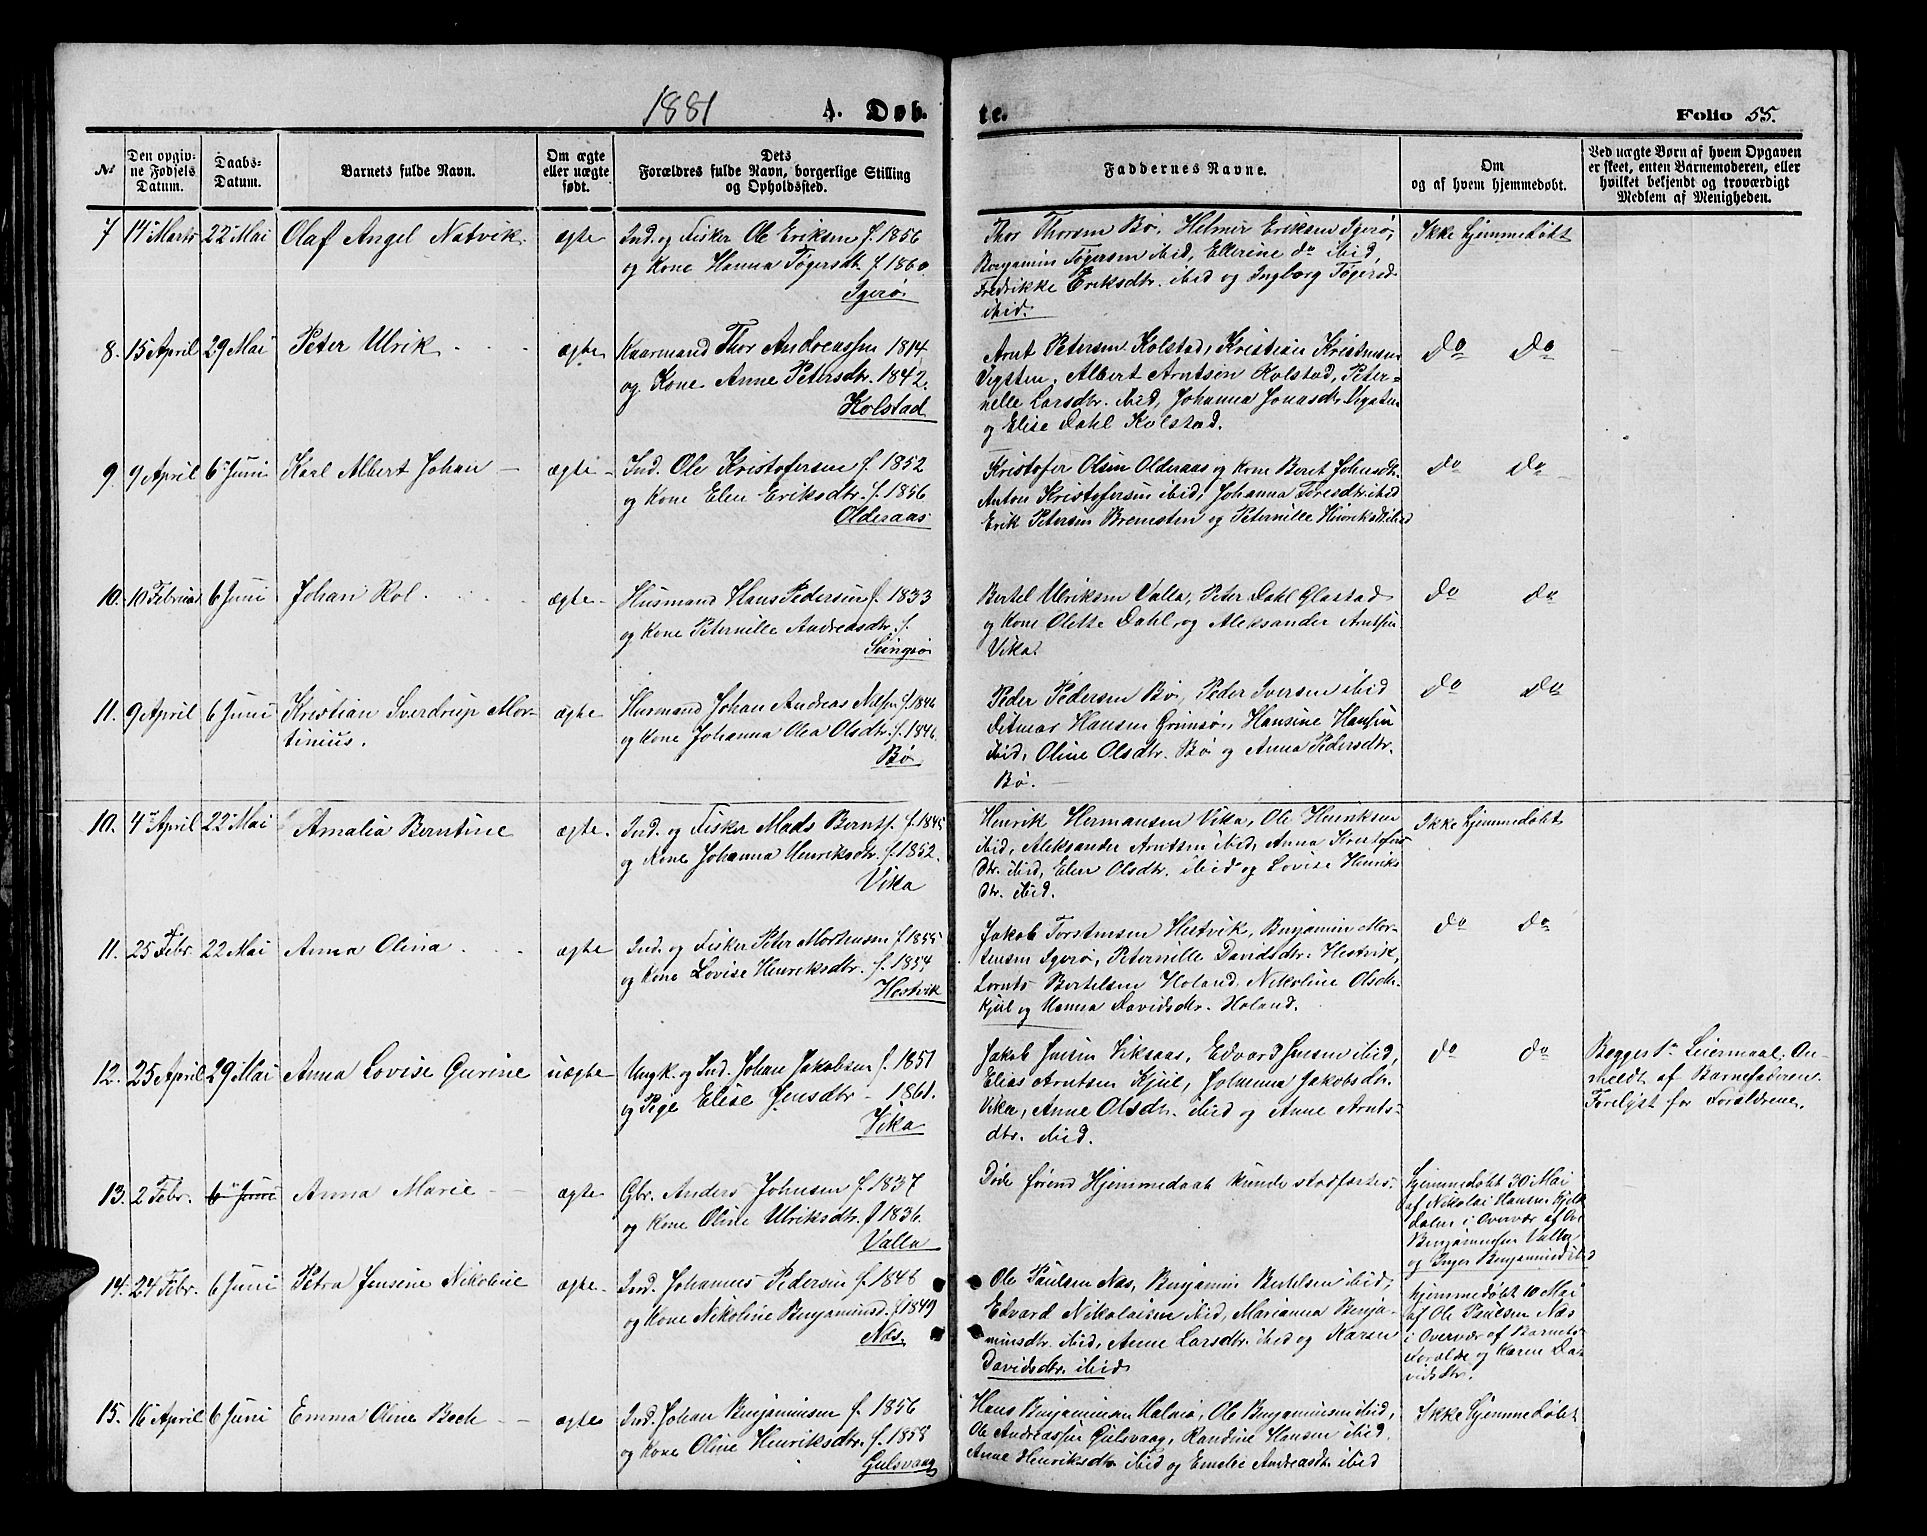 1881
A. Døb-
te.
Folio 55.
№
Den opgiv-
ne Fødsels
Datum.
Daabs-
Datum.
Barnets fulde Navn.
Om ægte
eller uægte
født.
Dets
Forældres fulde Navn, borgerlige Stilling
og Opholdssted.
Faddernes Navne.
Om
og af hvem hjemmedøbt.
Ved uægte Børn af hvem Opgaven
er skeet, enten Barnemoderen, eller
hvilket bekjendt og troværdigt
Medlem af Menigheden.
7 14 Marts 22 Mai Olaf Angel Natvik. ægte
Ind. og Fisker Ole Eriksen f. 1856
og Kone Hanna Tøgersdt. f. 1860.
Igerø.
Thor Thorsen Bø, Helmer Eriksen Igerø,
Benjamin Tøgersen ibid, Ellerine do ibid,
Fredrikke Eriksdtr. ibid og Ingborg Tøgersd.
ibid.
Ikke hjemmedøbt
8. 15 April 29 Mai Peter Ulrik ægte
Kaarmand Thor Andreassen 1814
og Kone Anne Petersdtr. 1842.
Kolstad
Arnt Petersen Kolstad, Kristian Kristensen
Vigsten, Albert Arntsen Kolstad, Peter-
nelle Larsdtr. ibid, Johanna Jonasdtr. Vigsten
og Elise Dahl Kolstad.
do do
9. 9 April 6 Juni Karl Albert Johan ægte
Ind. Ole Kristofersen f. 1852
og Kone Elen Eriksdtr. f. 1856
Olderaas
Kristofer Olsen Olderaas og Kone Beret Johensdt.
Anton Kristofersen ibid, Johanna Toresdtr. ibid
Erik Petersen Bremsten og Peternille Henriksdt. ibid
do do
10. 10 Februar 6 Juni Johan Rol. ægte
Husmand Hans Pedersen f. 1833
og Kone Peternille Andreasdtr. f.
Bertel Ulriksen Valla, Peter Dahl Glastad
og Kone Olette Dahl, og Aleksander Arntsen
Vika.
do do
11. 9 April 6 Juni Kristian Sverdrup Mor-
tinius. ægte
Husmand Johan Andreas Nilsen f. 1846
og Kone Johanna Olea Olsdtr. f. 1846.
Bø
Peder Pedersen Bø, Peder Iversen ibid
Ditmar Hansen Grimsø, Hansine Hansen
ibid, Oline Olsdtr. Bø og Anna Pedersdtr.
Bø.
do do
10. 4 April 22 Mai Amalia Berntine ægte.
Ind. og Fisker Mads Bernts. f. 1845
og Kone Johanna Henriksdtr. f. 1852.
Vika
Henrik Hermansen Vika, Ole Henriksen
ibid, Aleksander Arntsen ibid, Anna Kristofers-
dtr. ibid, Elen Olsdtr. ibid og Lovise Henriks-
dtr. ibid.
Ikke hjemmedøbt
11. 25 Febr. 22 Mai Anna Olina ægte
Ind. og Fisker Peter Mortensen f. 1855
og Kone Lovise Henriksdtr. f. 1854
Hestvik
Jakob Torstensen Hestvik, Benjamin Mor-
tensen Igerø, Peternille Davidsdtr. Hestvik,
Lornts Bertelsen Holand, Nikoline Olsdtr.
Kjul og Hanna Davidsdtr. Holand.
do do
12. 25 April 29 Mai Anna Lovise Gurine uægte
Ungk. og Ind. Johan Jakobsen f. 1851
og Pige Elise Jensdtr - 1861.
Vika
Jakob Jensen Viksaas, Edvard Jensen ibid,
Elias Arntsen Kjul, Johanna Jakobsdtr.
Vika, Anne Olsdtr. ibid og Anne Arnts-
dtr. ibid.
do do
Begges 1ste Leiermaal. An-
meldt af Barnefaderen.
Forelyst for Forældrene.
13. 2 Febr. 6 Juni Anna Marie ægte
Gbr. Anders Johnsen f. 1837
og Kone Oline Ulriksdtr. f. 1836.
Valla
Døde førend Hjemmedaab kunde stadfæstes.
hjemmedøbt 30 Mai
af Nikolai Hansen
i Overvær af
Benjaminsen Valla
og Inger Benjaminsd. ibid
14. 24 Febr. 6 Juni Petra Jensine Nikoline ægte.
Ind. Johannes Pedersen f. 1848
og Kone Nikoline Benjaminsd. f. 1849
Næs.
Ole Paulsen Næs, Benjamin Bertelsen ibid,
Edvard Nikolaisen ibid, Marianna Benja-
minsdtr. ibid, Anne Larsdtr. ibid og Karen
Davidsdtr. ibid
hjemmedøbt 10 Mai
af Ole Paulsen Næs
i Overvær af Barnets
Forældre og Karen Da-
vidsdtr.
15. 16 April 6 Juni Emma Oline Bech ægte
Ind. Johan Benjaminsen f. 1856
og Kone Oline Henriksdtr. f. 1858
Gulsvaag
Hans Benjaminsen Halmø, Ole Benjaminsen ibid,
Ole Andreassen Gulsvaag, Randine Hansen ibid.
Anne Henriksdtr. ibid og Emelie Andreasdtr. ibid
Ikke hjemmedøbt